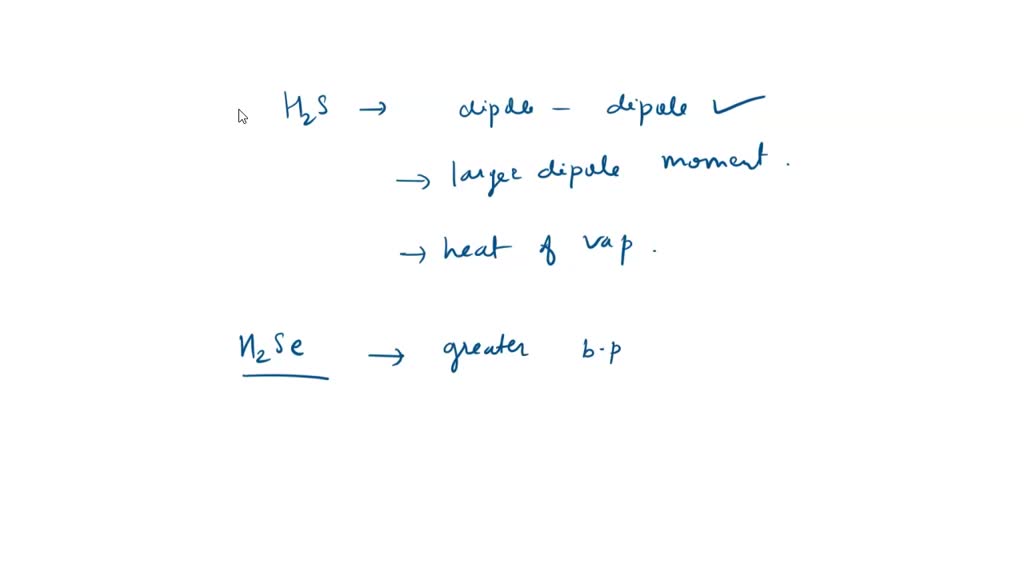 H₂S → dipole - dipole ✓
→ larger dipole moment.
→ heat of vap.
H₂Se → greater b.p